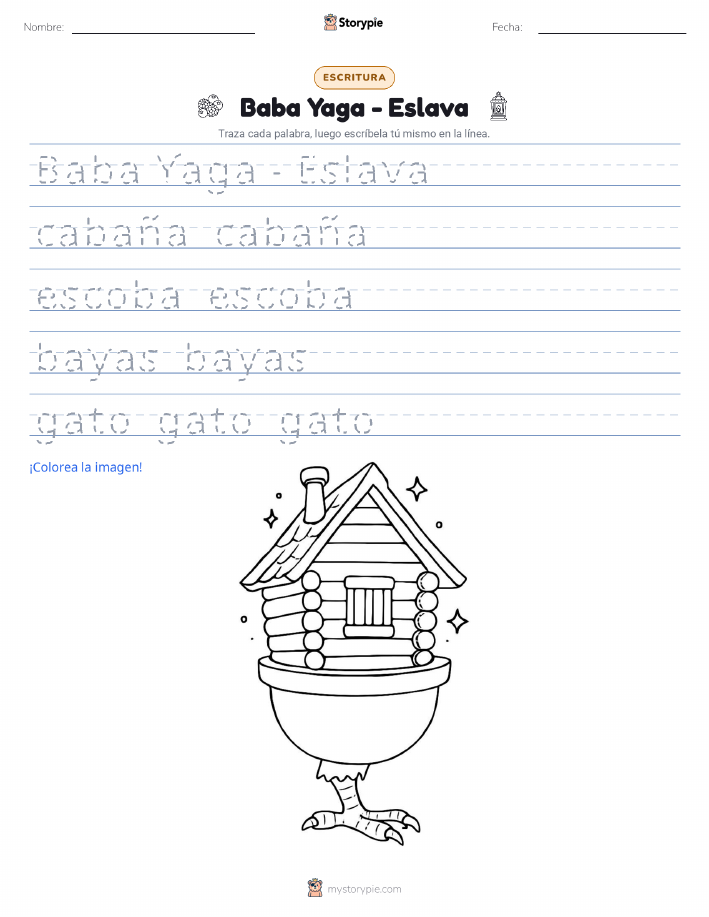 Nombre:
Storypie
Fecha:
ESCRITURA
Baba Yaga - Eslava
Traza cada palabra, luego escríbela tú mismo en la línea.
Baba Yaga - Eslava
cabaña cabaña
escoba escoba
bayas bayas
gato gato gato
¡Colorea la imagen!
mystorypie.com